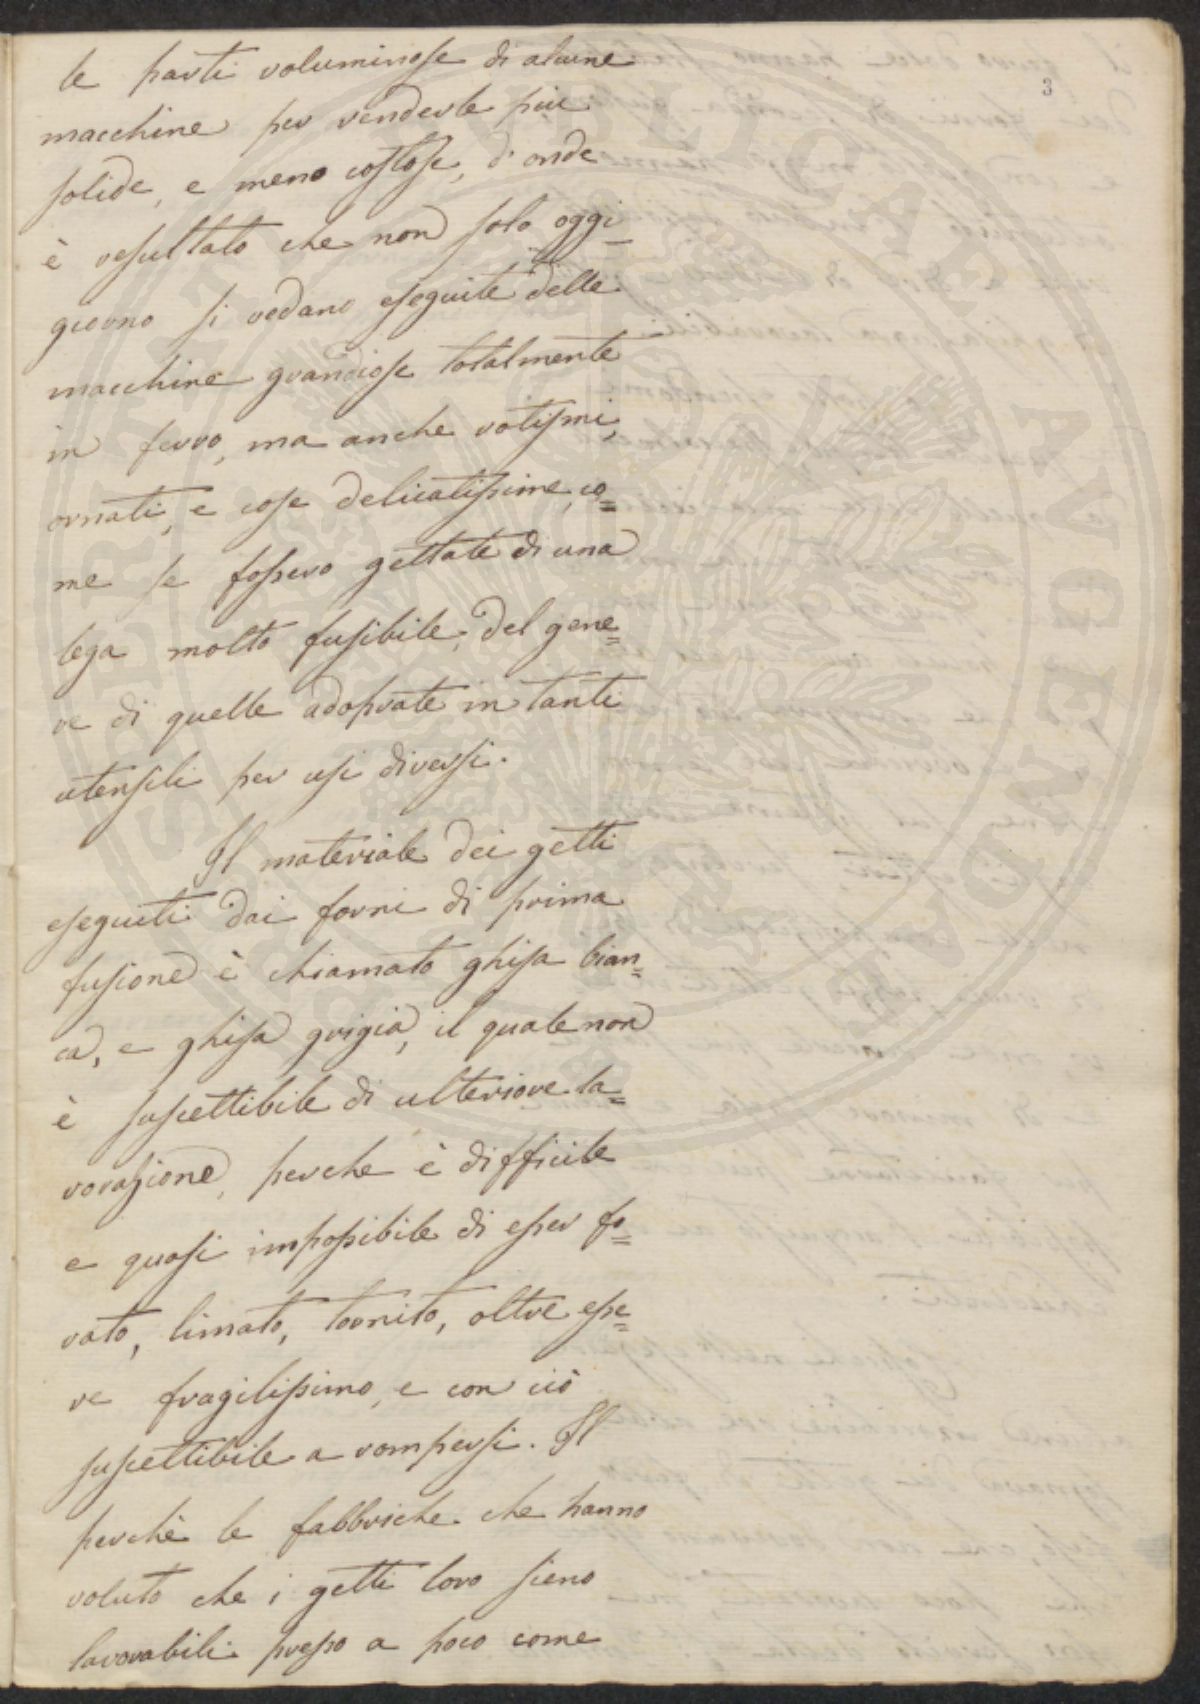 3
le parti voluminose di alcune
macchine per renderle più
solide, e meno costose, d'onde
è resultato che non solo oggi
giorno si vedano eseguite delle
macchine grandiose totalmente
in ferro, ma anche rotismi,
ornati, e cose delicatissime, co=
me se fossero gettate di una
lega molto fusibile, del gene=
re di quelle adoprate in tanti
utensili per usi diversi.
Il materiale dei getti
eseguiti dai forni di prima
fusione è chiamato ghisa bian=
ca, e ghisa grigia, il quale non
è suscettibile di ulteriore la=
vorazione, perche è difficile
e quasi impossibile di esser fo=
rato, limato, tornito, oltre esse=
re fragilissimo, e con ciò
suscettibile a rompersi. Il
perchè le fabbriche che hanno
voluto che i getti loro sieno
lavorabili presso a poco come